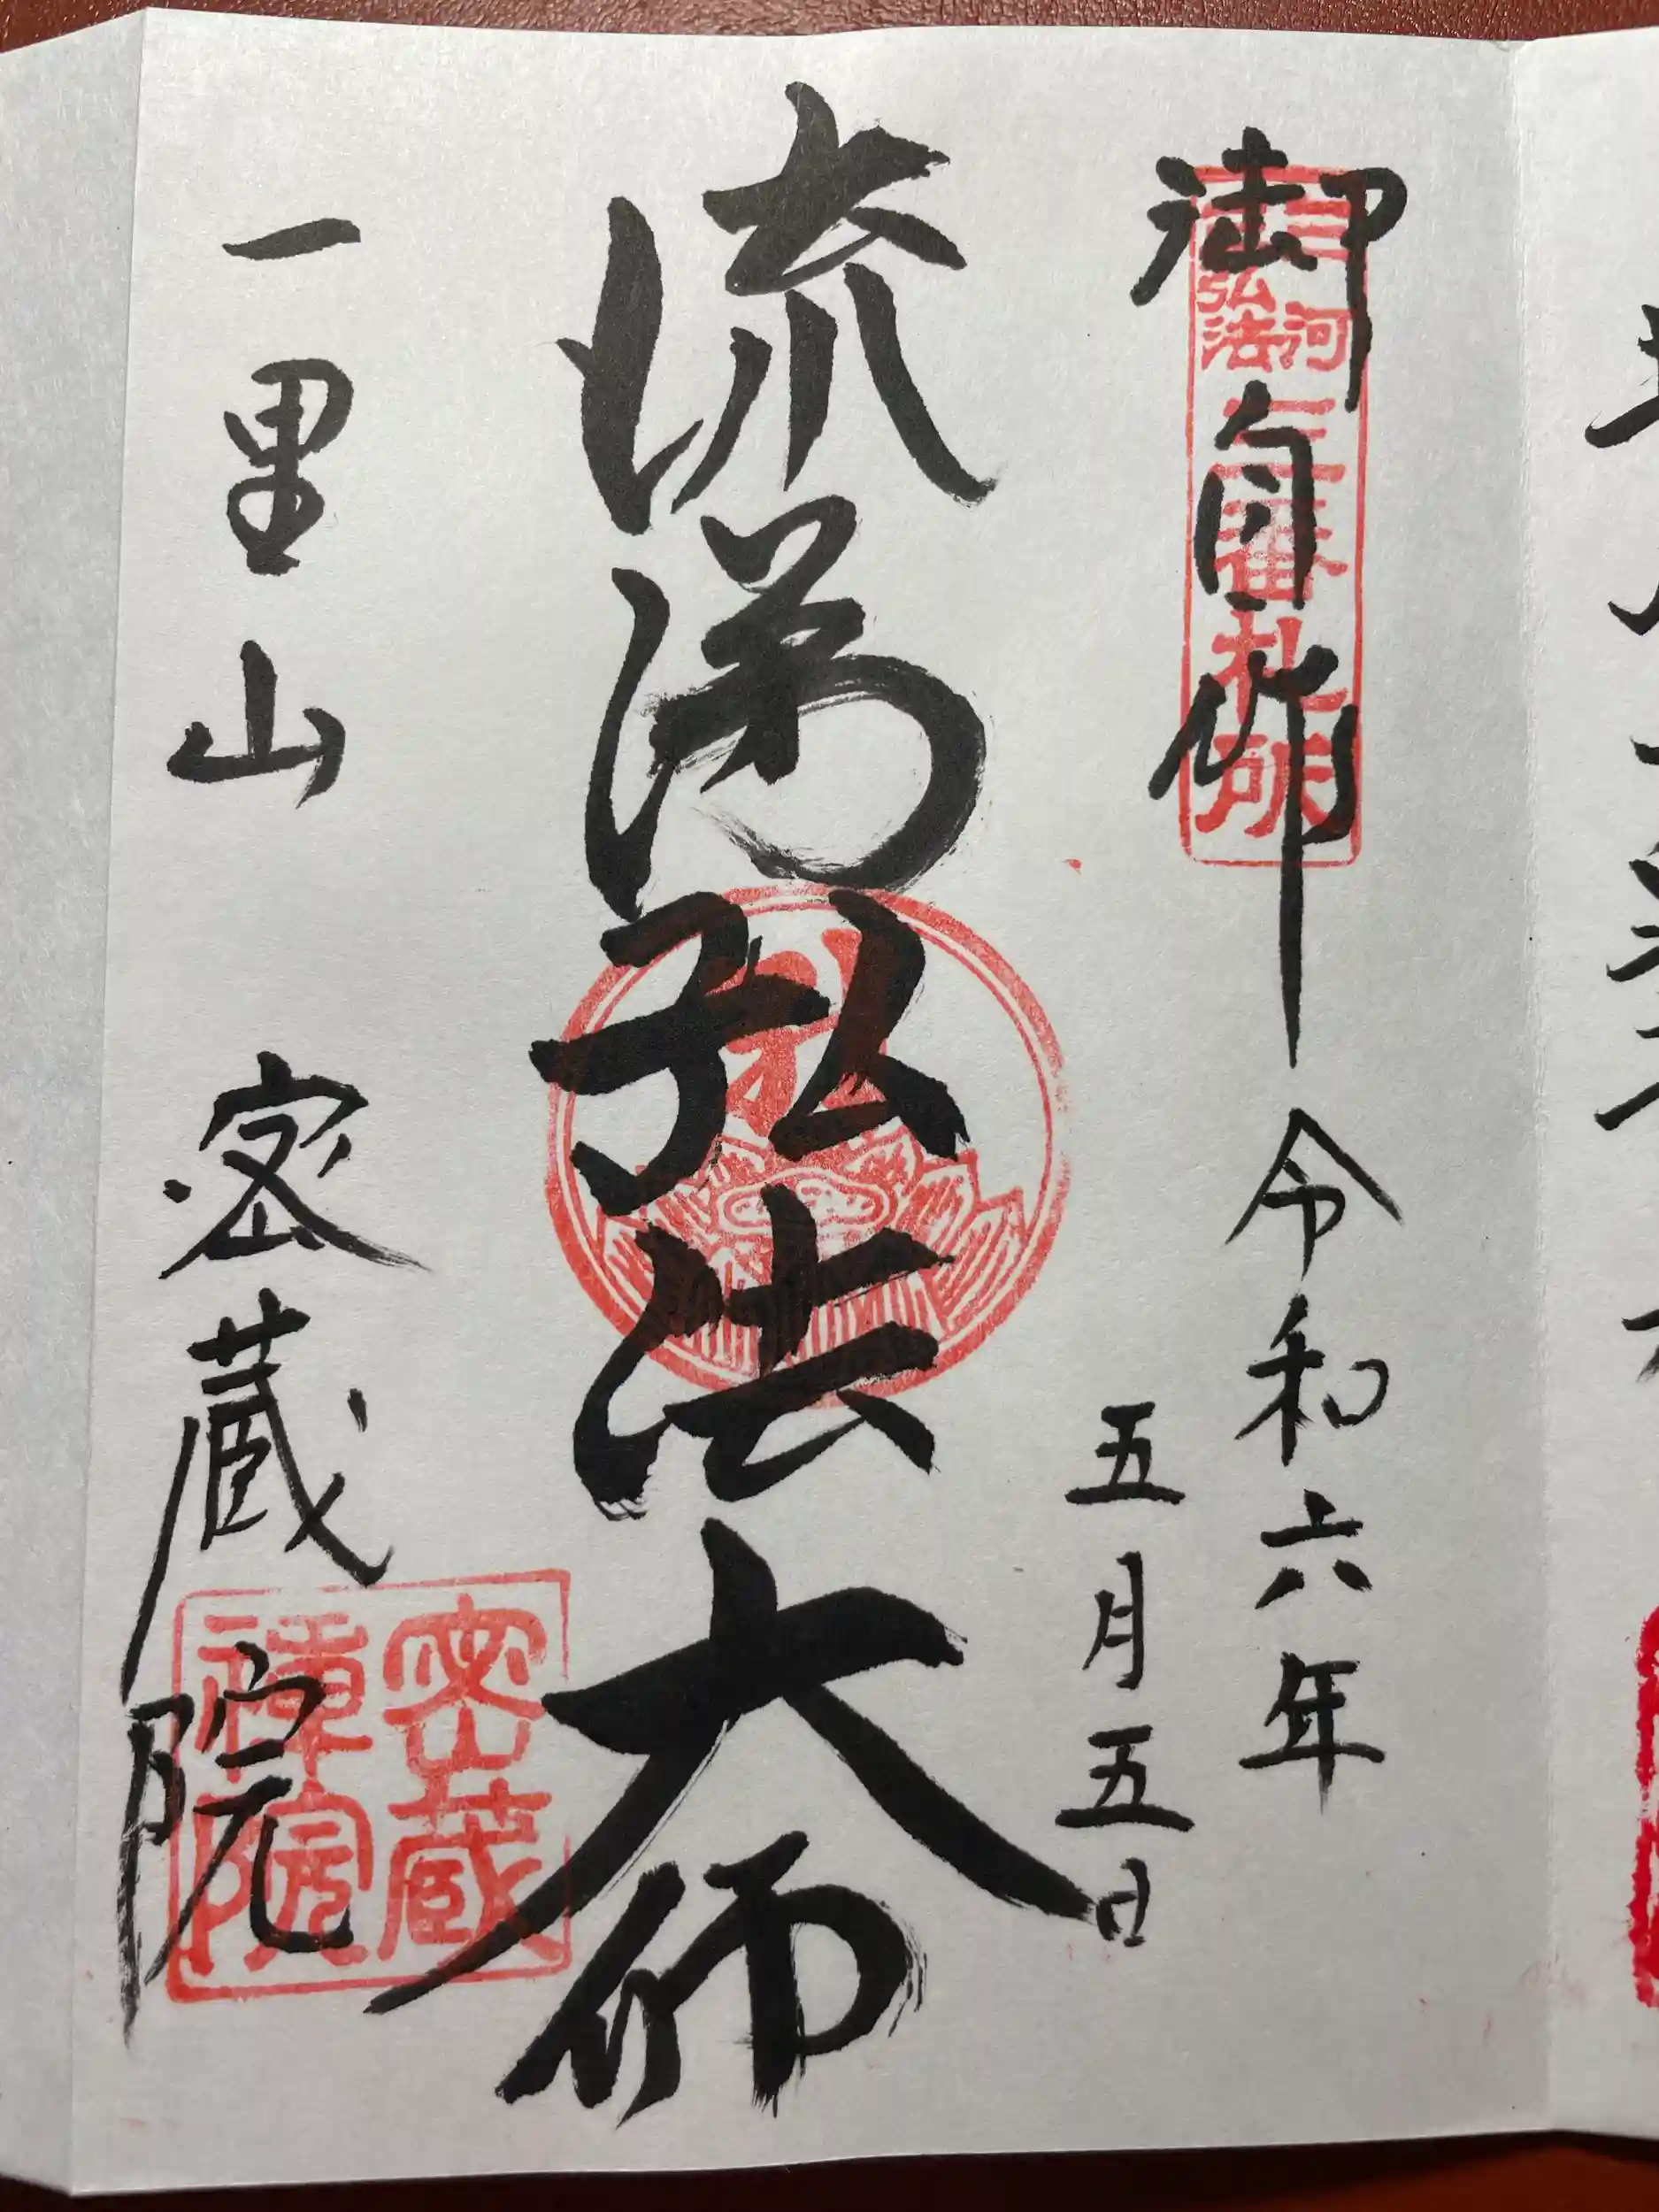 御自作
三河三弘法
三番札所
令和六年
五月五日
流涕弘法大師
一里山 密蔵院
密蔵
禅院